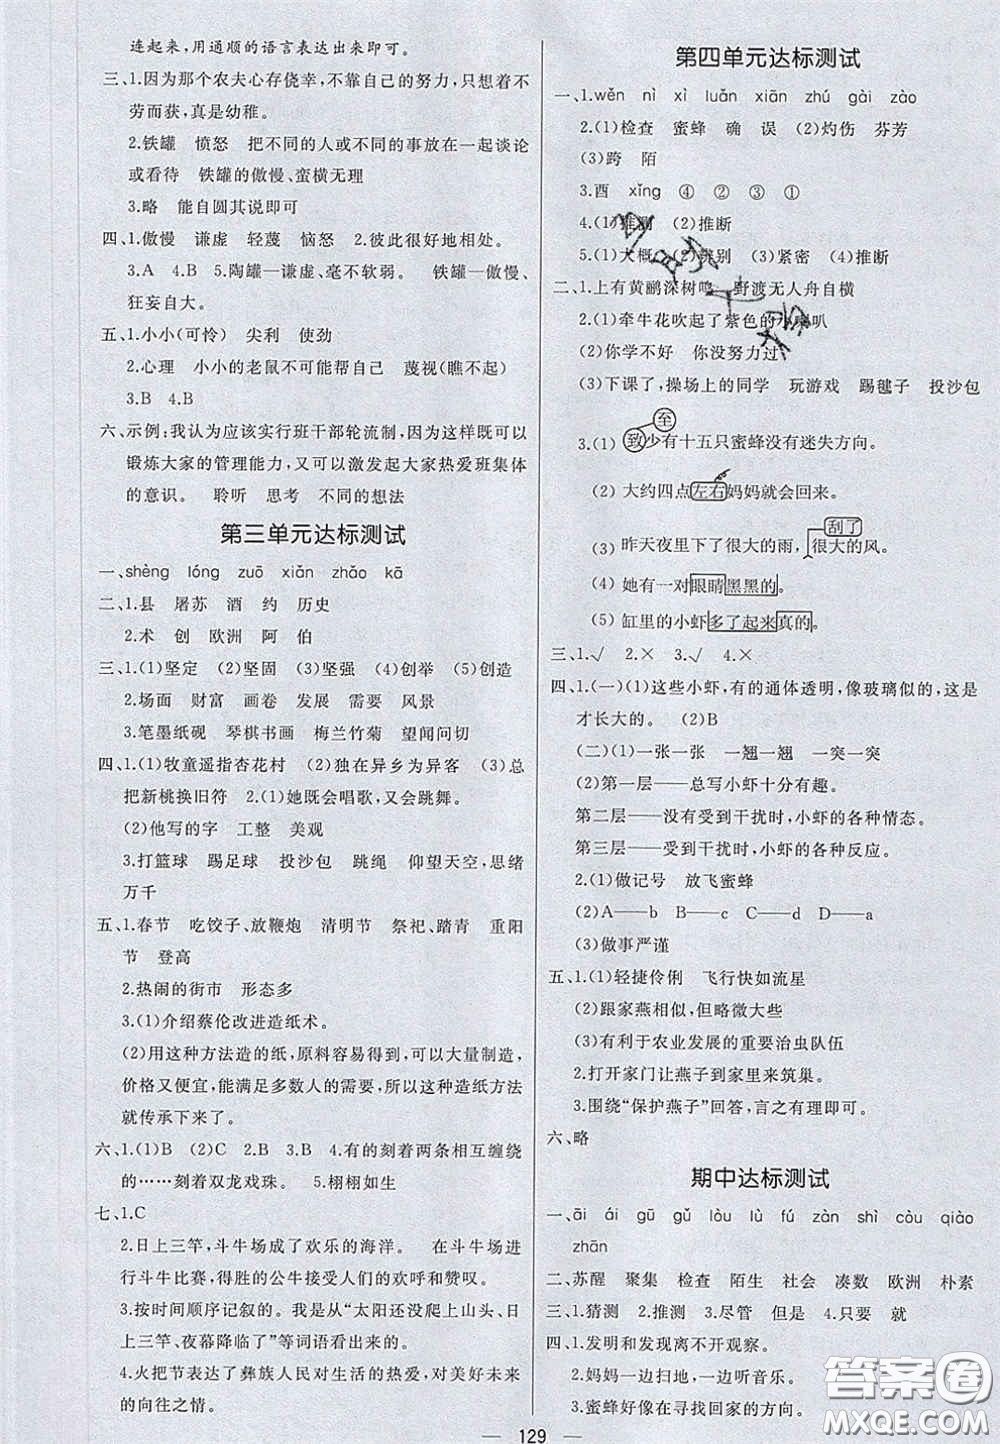 连起来,用通顺的语言表达出来即可。
三、1.因为那个农夫心存侥幸,不靠自己的努力,只想着不
劳而获,真是幼稚。
2.铁罐 愤怒 把不同的人或不同的事放在一起谈论
或看待 铁罐的傲慢、蛮横无理
3.略 能自圆其说即可
四、1.傲慢 谦虚 轻蔑 恼怒 2.彼此很好地相处。
3.A 4.B 5.陶罐—谦虚、毫不软弱。 铁罐—傲慢、
狂妄自大。
五、1.小小(可怜) 尖利 使劲
2.心理 小小的老鼠不可能帮自己 蔑视(瞧不起)
3.B 4.B
六、示例:我认为应该实行班干部轮流制,因为这样既可以
锻炼大家的管理能力,又可以激发起大家热爱班集体
的意识。 聆听 思考 不同的想法
第三单元达标测试
一、shèng lóng zuō xiǎn zhǎo kā
二、1.县 屠苏 酒 约 历史
2.术 创 欧洲 阿 伯
三、1.(1)坚定 (2)坚固 (3)坚强 (4)创举 (5)创造
2.场面 财富 画卷 发展 需要 风景
3.笔墨纸砚 琴棋书画 梅兰竹菊 望闻问切
四、1.(1)牧童遥指杏花村 (2)独在异乡为异客 (3)总
把新桃换旧符 2.(1)她既会唱歌,又会跳舞。
(2)他写的字 工整 美观
3.打篮球 踢足球 投沙包 跳绳 仰望天空,思绪
万千
五、1.春节 吃饺子、放鞭炮 清明节 祭祀、踏青 重阳
节 登高
2.热闹的街市 形态多
3.(1)介绍蔡伦改进造纸术。
(2)用这种方法造的纸,原料容易得到,可以大量制造,
价格又便宜,能满足多数人的需要,所以这种造纸方法
就传承下来了。
六、1.(1)B (2)C 2.B 3.B 4.有的刻着两条相互缠绕
的……刻着双龙戏珠。 5.栩栩如生
七、1.C
2.日上三竿,斗牛场成了欢乐的海洋。 在斗牛场上
进行斗牛比赛,得胜的公牛接受人们的欢呼和赞叹。
3.按时间顺序记叙的。我是从“太阳还没爬上山头、日
上三竿、夜幕降临了”等词语看出来的。
4.火把节表达了彝族人民对生活的热爱,对美好未来
的向往之情。
第四单元达标测试
一、1.wěn nì xì luǎn xiān zhú gài zào
2.(1)检查 蜜蜂 确 误 (2)灼伤 芬芳
(3)跨 陌
3.酉 xǐng ④ ② ③ ①
4.(1)推测 (2)推断
5.(1)大概 (2)辨别 (3)紧密 (4)推断
二、1.上有黄鹂深树鸣 野渡无人舟自横
2.(1)牵牛花吹起了紫色的小喇叭
(2)你学不好 你没努力过
(3)下课了,操场上的同学 玩游戏 踢毽子 投沙包
至
3.(1)致少有十五只蜜蜂没有迷失方向。
(2)大约四点左右妈妈就会回来。
刮了
(3)昨天夜里下了很大的雨,很大的风。
(4)她有一对眼睛黑黑的。
(5)缸里的小虾多了起来真的。
三、1.√ 2.× 3.√ 4.×
四、1.(一)(1)这些小虾,有的通体透明,像玻璃似的,这是
才长大的。 (2)B
(二)(1)一张一张 一翘一翘 一突一突
(2)第一层——总写小虾十分有趣。
第二层——没有受到干扰时,小虾的各种情态。
第三层——受到干扰时,小虾的各种反应。
2.(1)做记号 放飞蜜蜂
(2)A——b B——c C——d D——a
(3)做事严谨
五、1.(1)轻捷伶俐 飞行快如流星
(2)跟家燕相似,但略微大些
(3)有利于农业发展的重要治虫队伍
2.打开家门让燕子到家里来筑巢。
3.围绕“保护燕子”回答,言之有理即可。
六、略
期中达标测试
一、āi ái gū gǔ lòu lù fú zàn shì còu qiào
zhān
二、苏醒 聚集 检查 陌生 社会 凑数 欧洲 朴素
三、1.猜测 2.推测 3.尽管 但是 4.只要 就
四、1.发明和发现离不开观察。
2.妈妈一边扫地,一边听音乐。
3.蜜蜂好像在寻找回家的方向。
129
答案圈
MXQE.COM